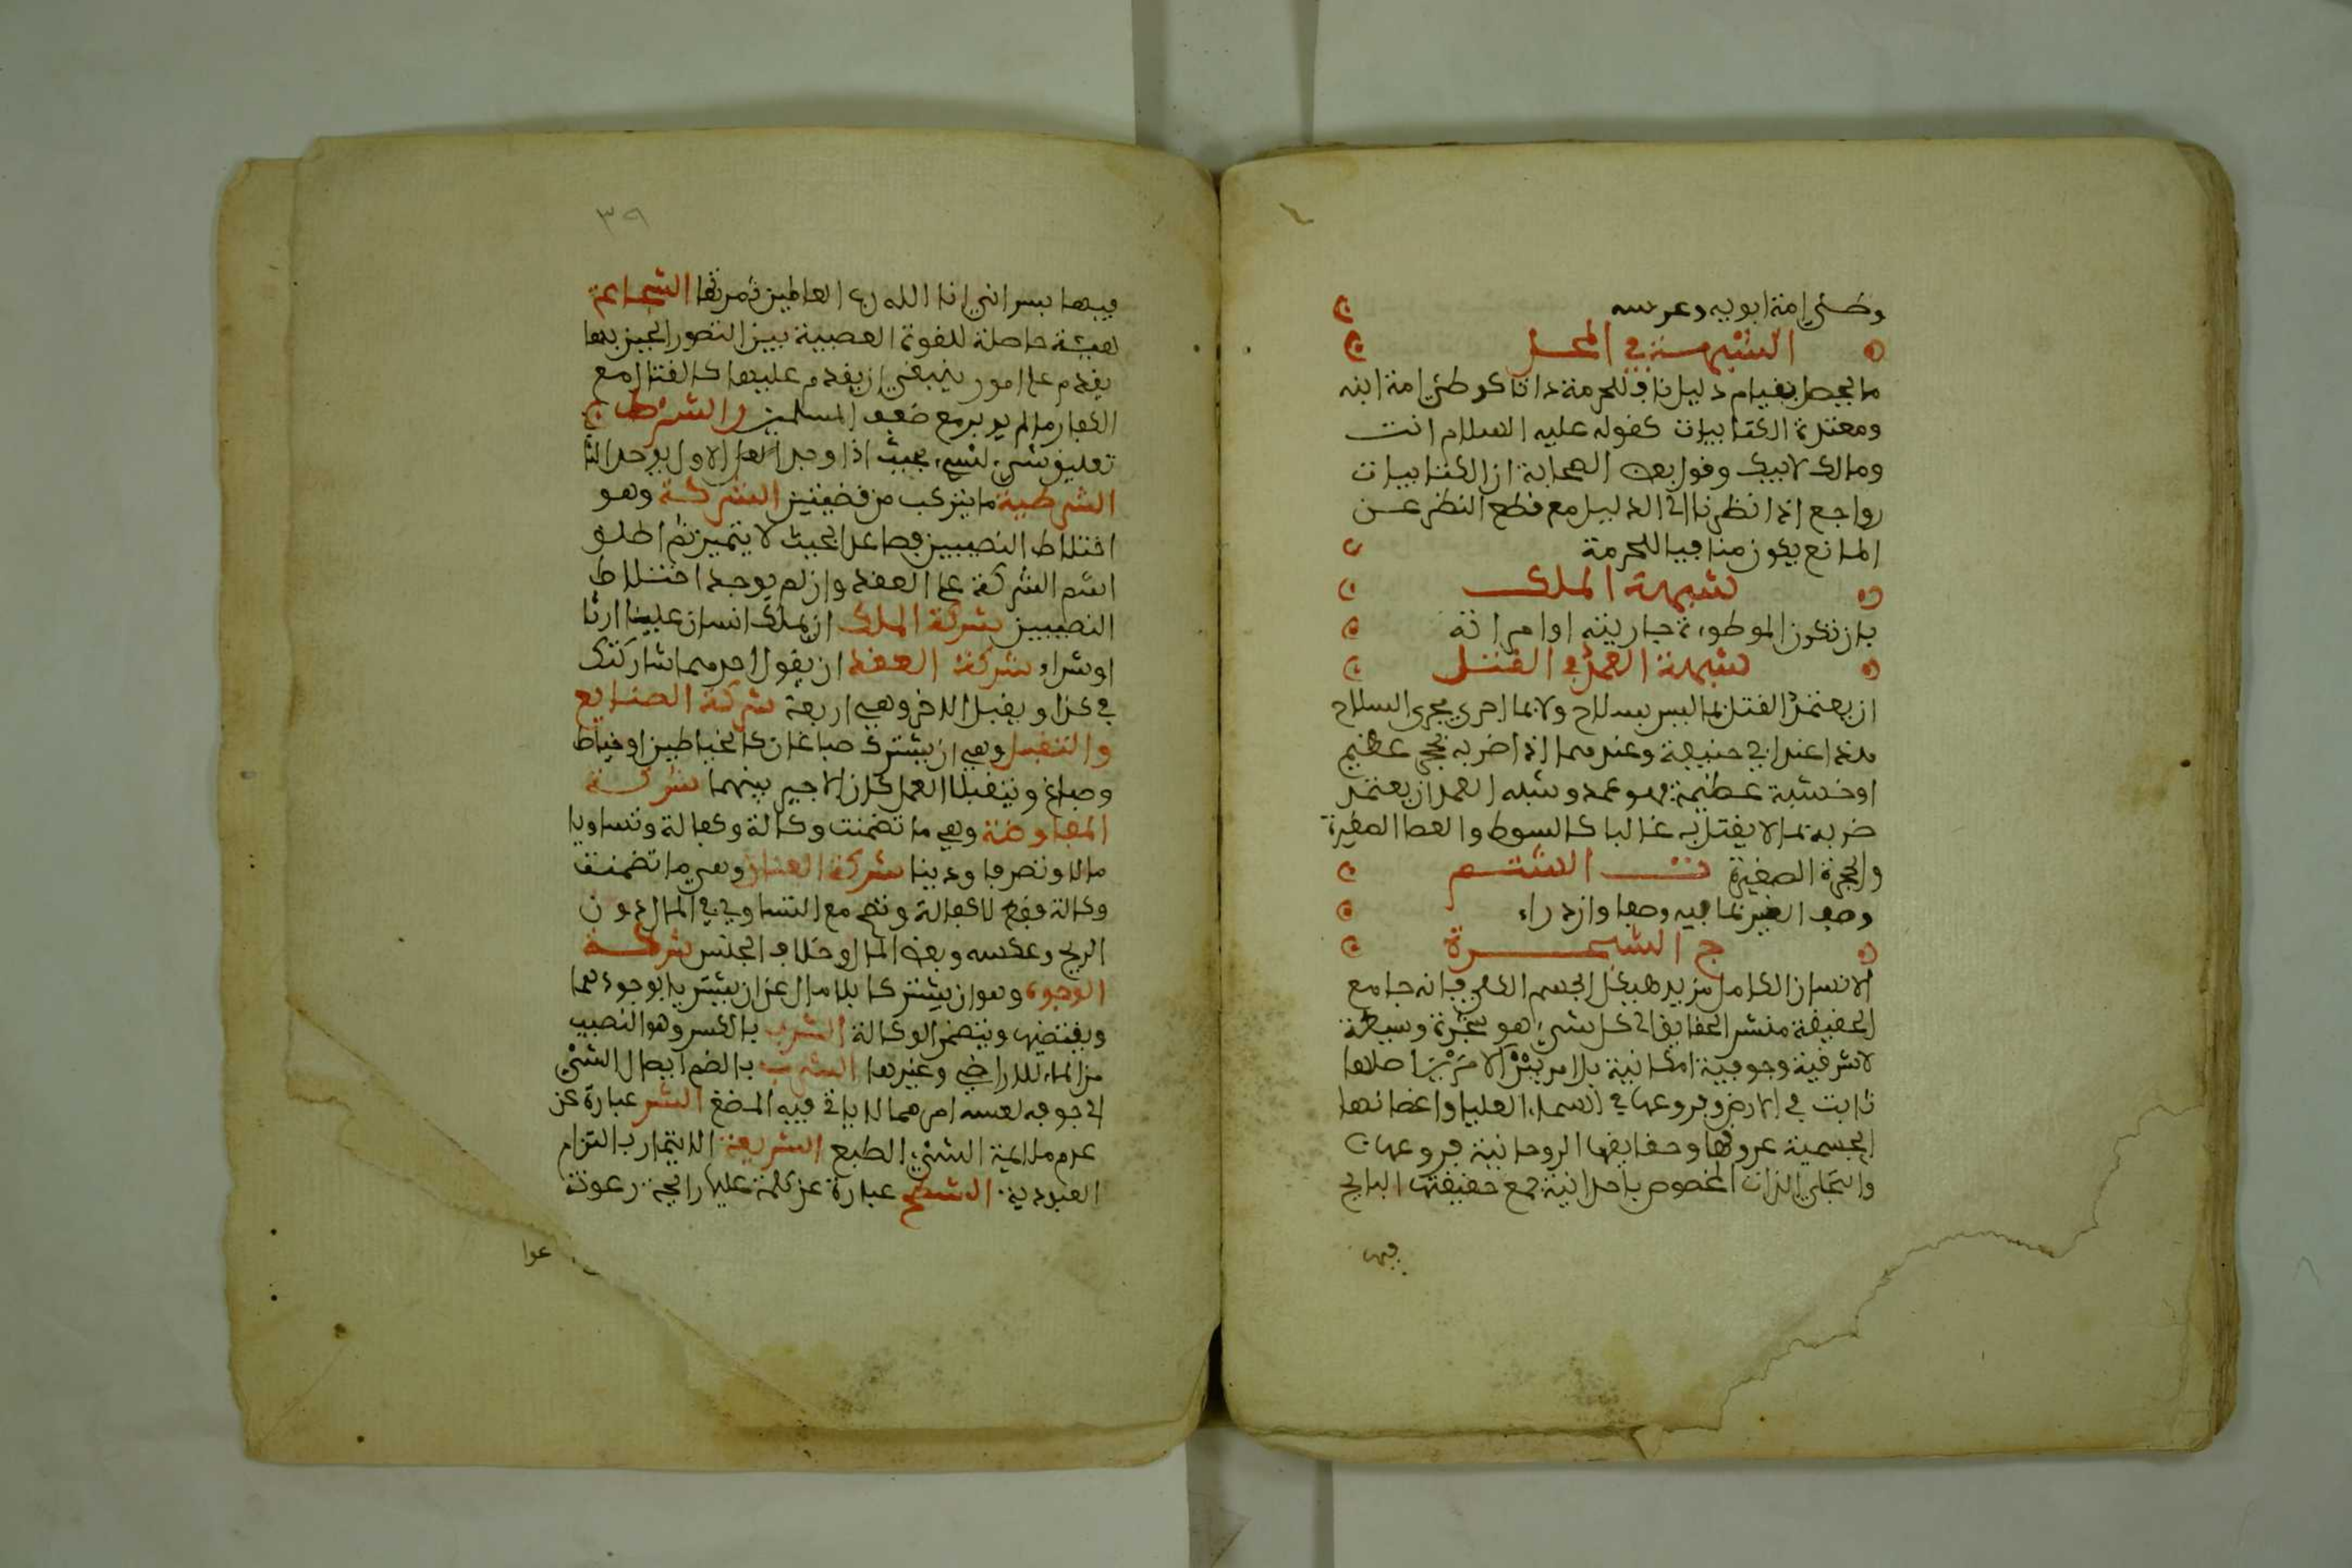 وطئي امة ابويه وعرسه
الشبهة في المحل
ما يحصل بقيام دليل ناف للحرمة ذاتا كوطئي امة ابنه
ومعتدة الكنايات كقوله عليه السلام انت
ومالك لابيك وقول بعض الصحابة ان الكنايات
رواجع اذا نظرنا الى الدليل مع قطع النظر عن
المانع يكون منافيا للحرمة
شبهة الملك
بان تكون الموطوءة جاريته او امراته
شبهة العمد في القتل
ان يعتمد القتل بما ليس بسلاح ولا بما اجري مجرى السلاح
هذا عند ابي حنيفة وعندهما اذا ضربه بحجر عظيم
او خشبة عظيمة فهو عمد وشبه العمد ان يعتمد
ضربه بما لا يقتل به غالبا كالسوط والعصا الصغيرة
والحجرة الصغيرة ت الشتم
وصف الغير بما فيه وصفا وازدراء
ج الشجرة
الانسان الكامل مدبر هيكل الجسم الكلي فانه جامع
الحقيقة منتشر الحقايق الى كل شيء هو شجرة وسيطة
لا شرقية وجوبية امكانية بل امر بين الامرين اصلها
ثابت في الارض وفروعها في السماء العليا واعضائها
الجسمية عروقها وحقايقها الروحانية فروعها
والتجلي الذات المخصوص باحدانية جمع حقيقتها النابج
فيها
٣٩
فيها بسر اني انا الله رب العالمين ثمرتها الشجاعة
هيئة حاصلة للقوة العصبية بين التهور والجبن بها
يقدم على امور ينبغي ان يقدم عليها كالقتال مع
الكفار ما لم يزيدوا مع ضعف المسلمين الشرط
تعليق شيء لشيء بحيث اذا وجد الاول يوجد الثا
الشرطية ما يتركب من قضيتين الشركة وهو
اختلاط النصيبين فصاعدا بحيث لا يتميز ثم اطلق
اسم الشركة على العقد وان لم يوجد اختلاط
النصيبين شركة الملك ان يملك انسان عينا ارثا
او شراء شركة العقد ان يقول احدهما شاركتك
في كذا ويقبل الاخر وهي اربعة شركة الصنايع
والتقبل وهي ان يشترك صباغان كالخياطين او خياط
وصباغ ويتقبلا العمل كان الاجير بينهما شركة
المفاوضة وهي ما تضمنت وكالة وكفالة وتساويا
مالا وتصرفا ودينا شركة العنان وهي ما تضمنت
وكالة فقط لا كفالة وتصح مع التساوي في المال دون
الربح وعكسه وبعض المال وخلاف الجنس شركة
الوجوه وهو ان يشتركا بلا مال على ان يشتريا بوجوههما
ويقتضيها ويتضمن الوكالة الشرب بالكسر وهو النصيب
من الماء للاراضي وغيرها الشرب بالضم ايصال الشيء
الى جوفه بفيه امر مما لا ياتي فيه المضغ الشر عبارة عن
عدم ملائمة الشيء الطبع الشريعة الايتمار بالتزام
العبودية الشطح عبارة عن كلمة عليها رائحة رعونة
عوا